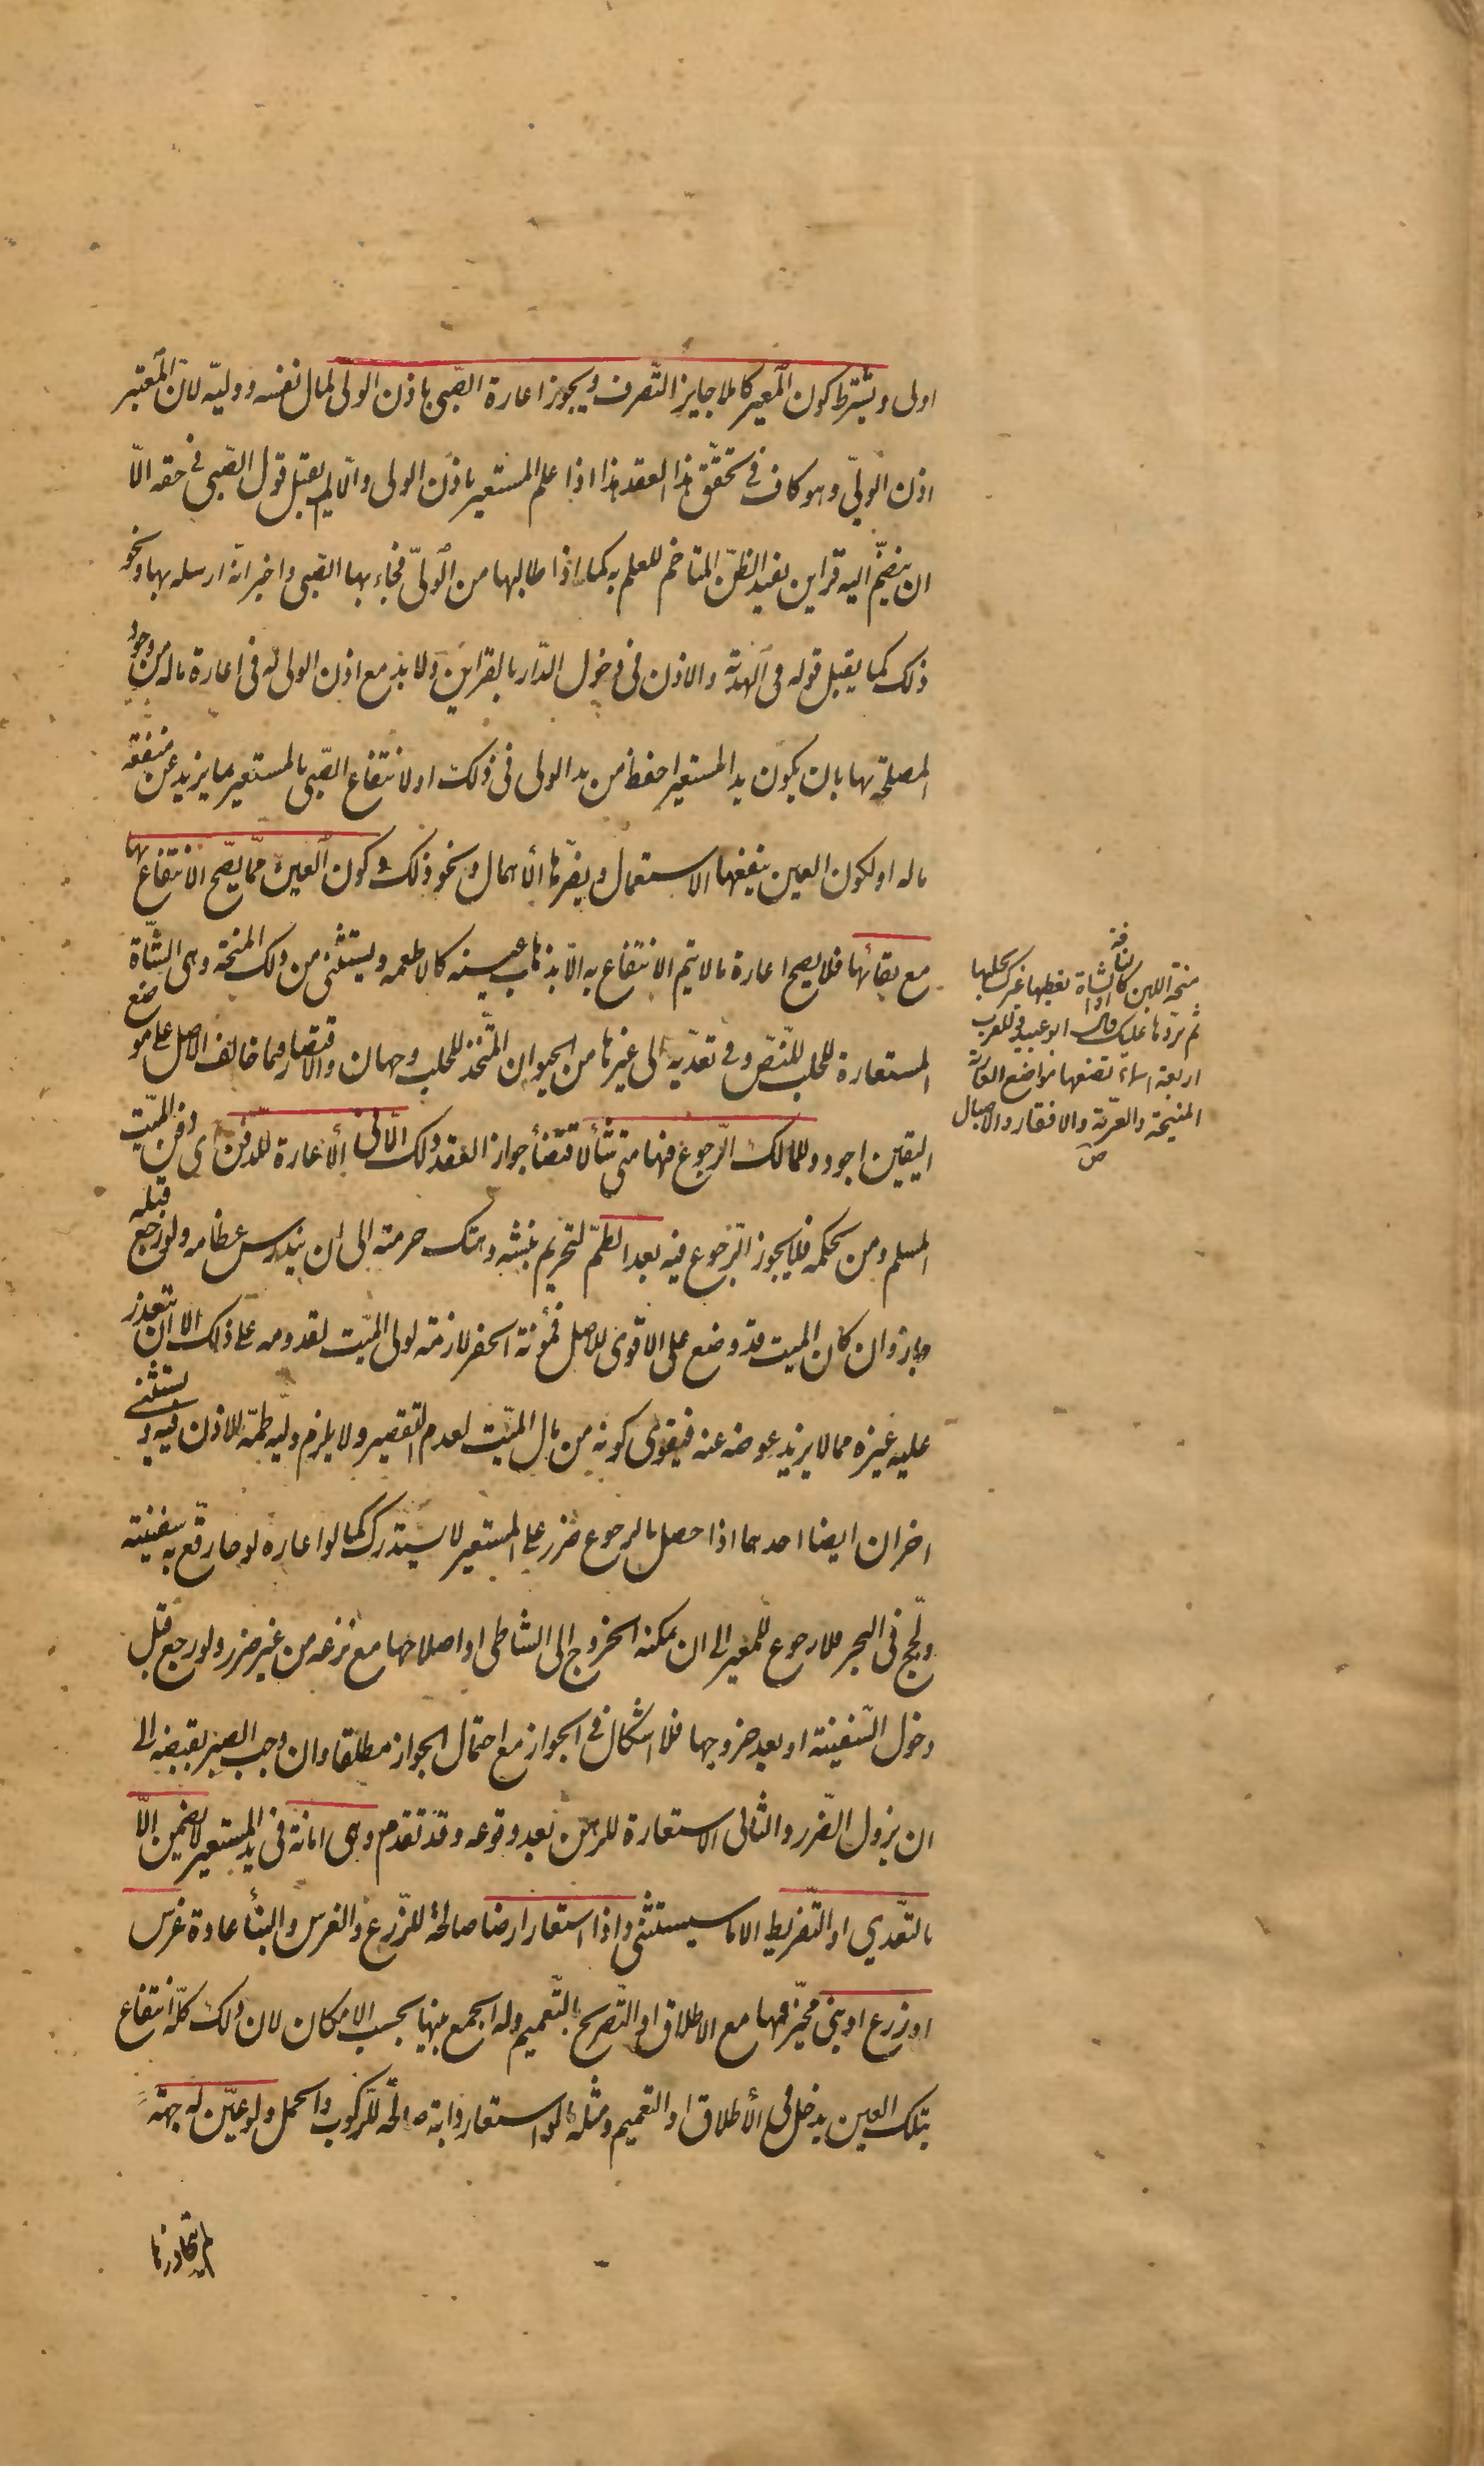 اولى ويشترط كون المعير كاملا جايز التصرف ويجوز اعارة الصبي باذن الولي لمال نفسه ووليه لان المعتبر
اذن الولي وهو كاف في تحقق هذا العقد هذا اذا علم المستعير باذن الولي والا لم يقبل قول الصبي في حقه الا
ان ينضم اليه قراين يفيد الظن المتاخم للعلم به كما اذا طالبها من الولي فجاء بها الصبي واخبر انه ارسله بها ونحو
ذلك كما يقبل قوله في الهدية والاذن في دخول الدار بالقراين ولا بد مع اذن الولي له في اعارة ماله من وجود
المصلحة بها بان يكون يد المستعير احفظ من يد الولي في ذلك او لانتفاع الصبي بالمستعير بما يزيد عن منفعة
ماله او لكون العين ينفعها الاستعمال ويضرها الاهمال ونحو ذلك وكون العين مما يصح الانتفاع بها
مع بقائها فلا يصح اعارة ما لا يتم الانتفاع به الا بذهاب عينه كالاطعمه ويستثنى من ذلك المنحة وهي الشاة
المستعارة للحلب للنص وفي تعديه الى غيرها من الحيوان المتخذ للحلب وجهان والاقتصار فيما خالف الاصل على موضع
اليقين اجود وللمالك الرجوع فيها متى شاء لاقتضاء جواز العقد ذلك الا في الاعارة للدفن اى دفن الميت
المسلم ومن بحكمه فلا يجوز الرجوع فيه بعد الطم لتحريم نبشه وهتك حرمته الى ان يندرس عظامه ولو رجع قبله
جاز وان كان الميت قد وضع على الاقوى للاصل فمؤنة الحفر لازمة لولي الميت لقدومه على ذلك الا ان يتعذر
عليه غيره مما لا يزيد عوضه عنه فيقوى كونه من مال الميت لعدم التقصير ولا يلزم وليه طمه للاذن فيه ويستثنى
اخران ايضا احدهما اذا حصل بالرجوع ضرر على المستعير لا يستدرك كما لو اعاره لوحا رقع به سفينته
ولجج في البحر فلا رجوع للمعير الى ان يمكنه الخروج الى الشاطى او اصلاحها مع نزعه من غير ضرر ولو رجع قبل
دخول السفينة او بعد خروجها فلا اشكال في الجواز مع احتمال الجواز مطلقا وان وجب الصبر بقبضه الى
ان يزول الضرر والثاني الاستعارة للرهن بعد وقوعه وقد تقدم وهي امانة في يد المستعير لا يضمن الا
بالتعدي او التفريط الا ما سيستثنى واذا استعار ارضا صالحة للزرع والغرس والبناء عادة غرس
او زرع او بنى مخيرا فيها مع الاطلاق او التصريح بالتعميم وله الجمع بينها بحسب الامكان لان ذلك كله انتفاع
بتلك العين يدخل في الاطلاق او التعميم ومثله ما لو استعار دابة صالحة للركوب والحمل ولو عين له جهة
لم يتجاوزها
منحة اللبن كالناقة او الشاة تعطيها غيرك يحلبها
ثم يردها عليك قال ابو عبيد وللعرب
اربعة اسماء تضعها مواضع العارية
المنيحة والعرية والافقار والاخبال
ص